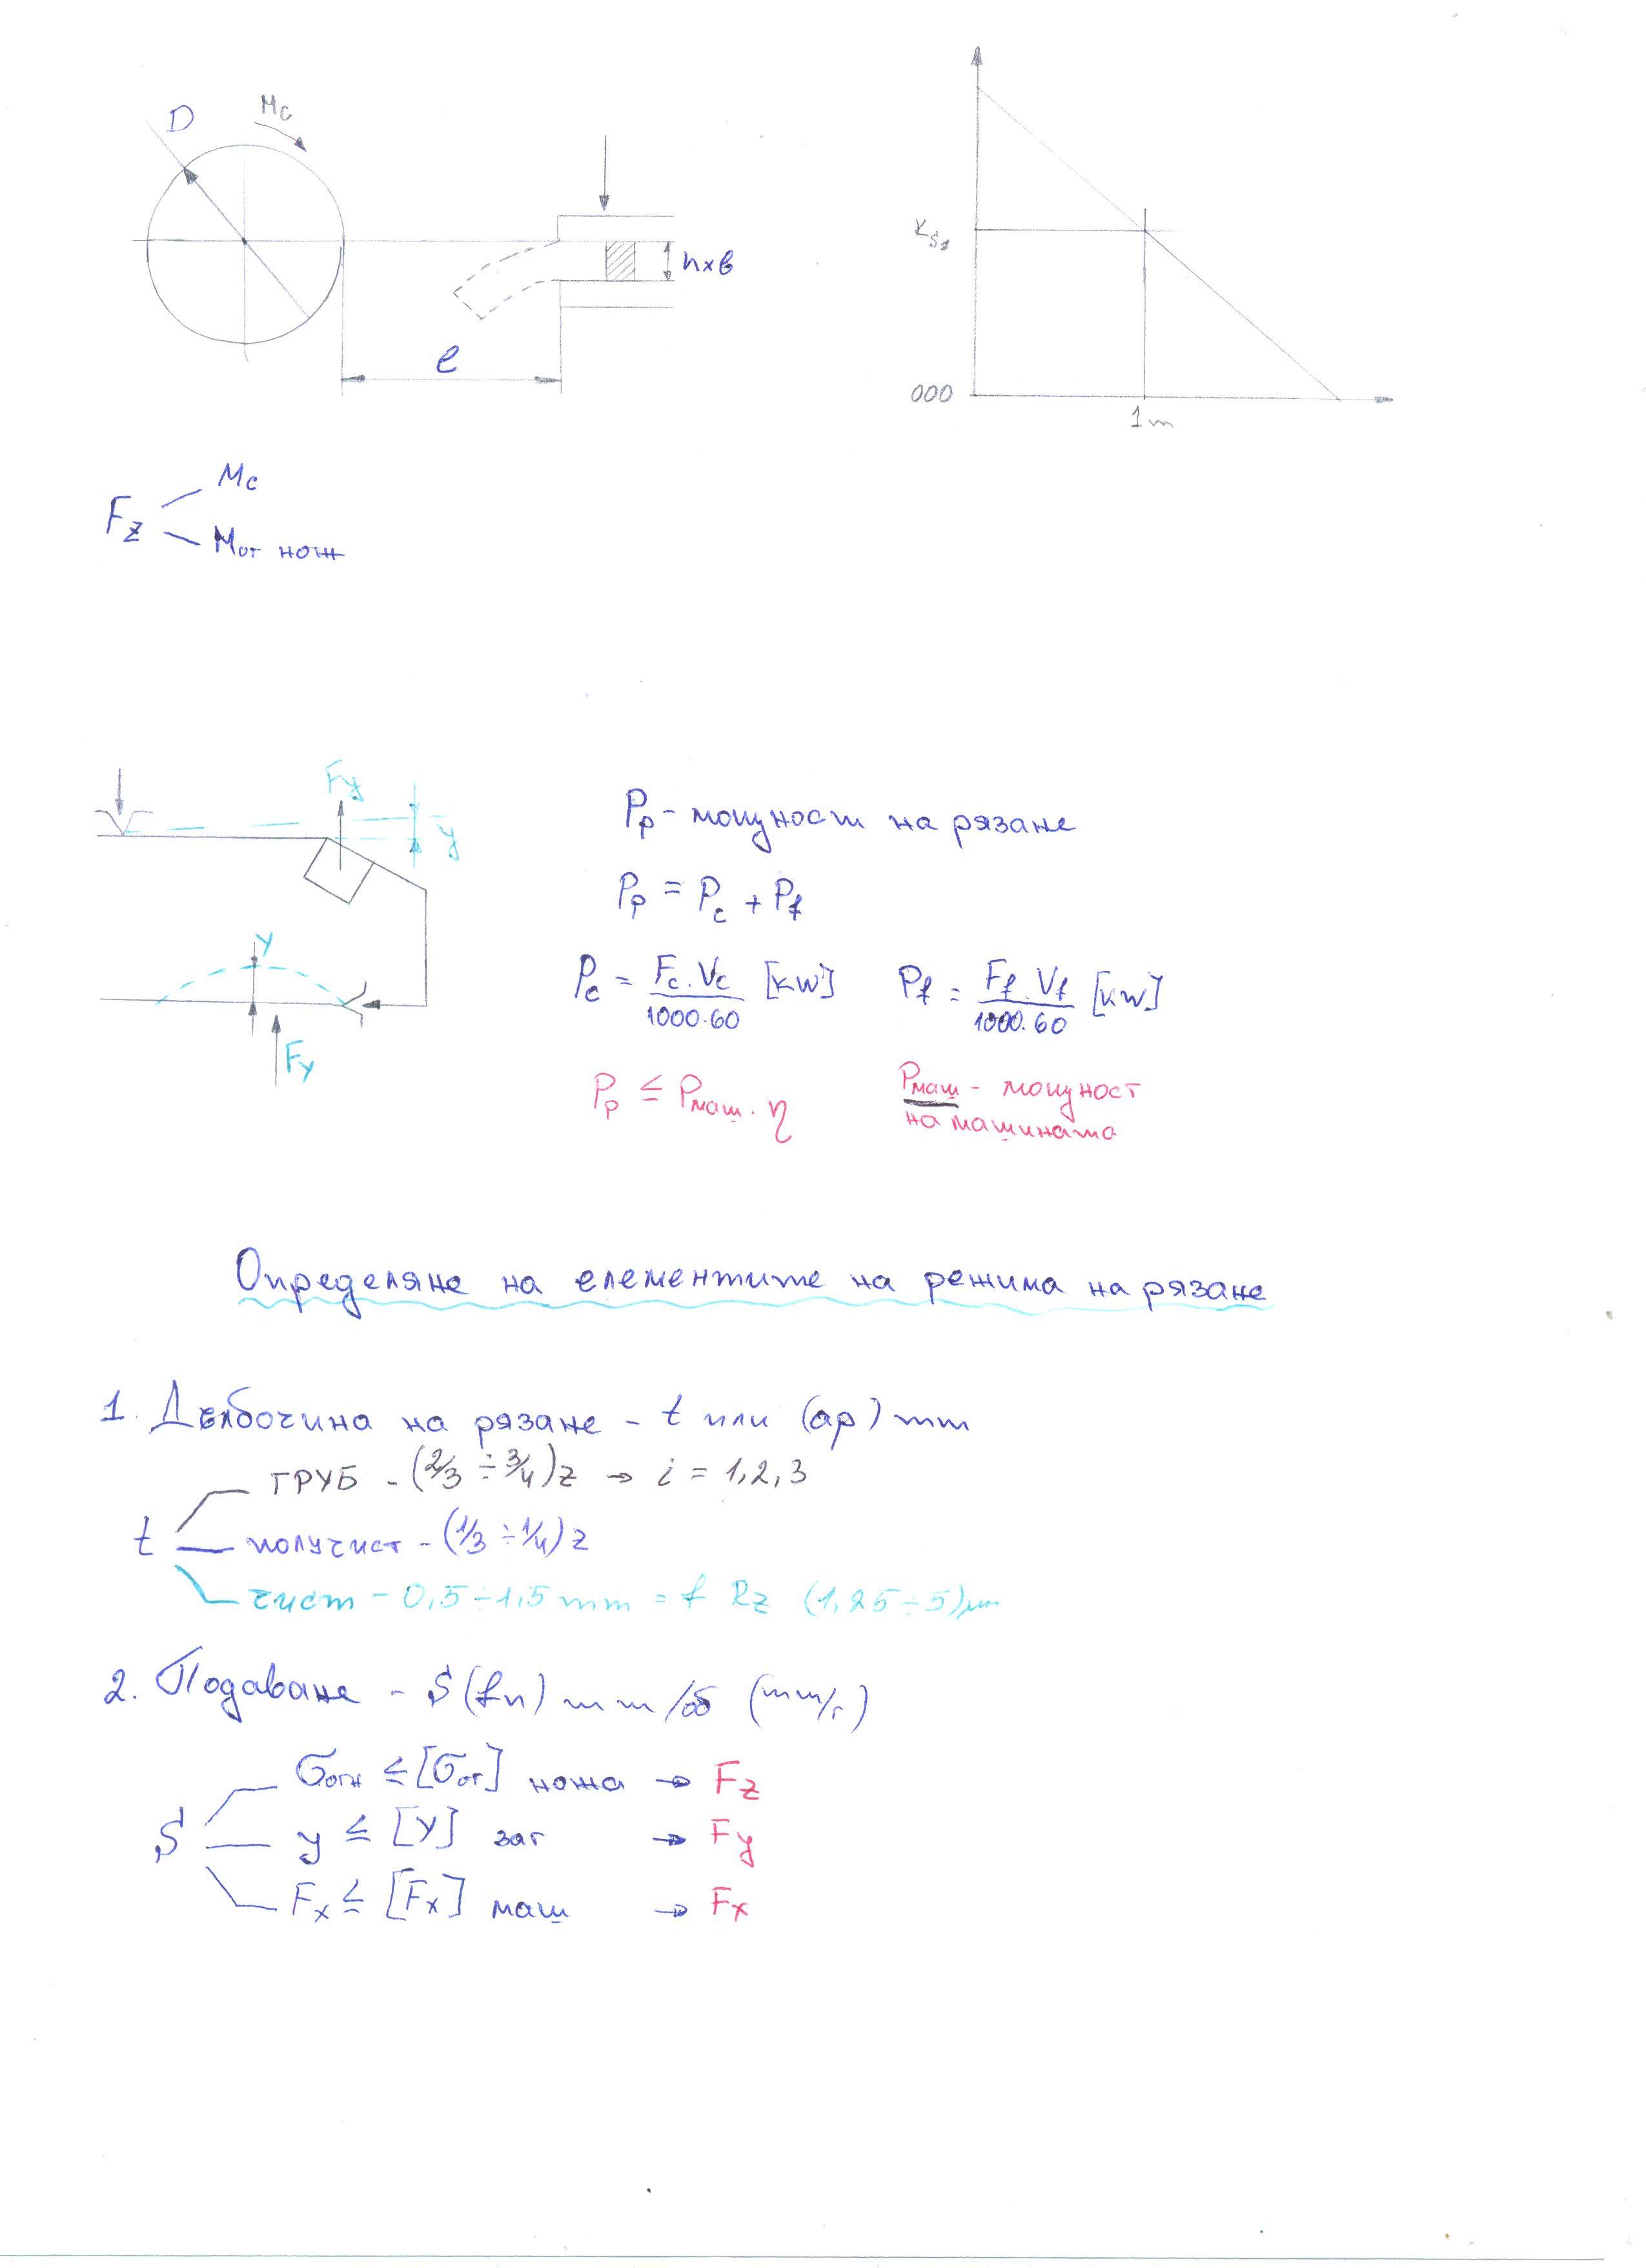 D
Mc
h×b
l
Ks1
000
1m
Fz
Mc
Mог нож
Fy
y
y
Fy
Pp - мощност на рязане
Pp = Pc + Pf
Pc = Fc.Vc / 1000.60 [kW]
Pf = Ff.Vf / 1000.60 [kW]
Pp ≤ Pмаш. η
Pмаш - мощност
на машината
Определяне на елементите на режима на рязане
1. Дълбочина на рязане - t или (ap) mm
t
ГРУБ - (2/3 ÷ 3/4)z → i = 1,2,3
получист - (1/3 ÷ 1/4)z
чист - 0,5 ÷ 1,5 mm = f Rz (1,25 ÷ 5)μm
2. Подаване - S(fn) mm/об (mm/r)
S
σогн ≤ [σог] ножа → Fz
y ≤ [y] заг → Fy
Fx ≤ [Fx] маш → Fx